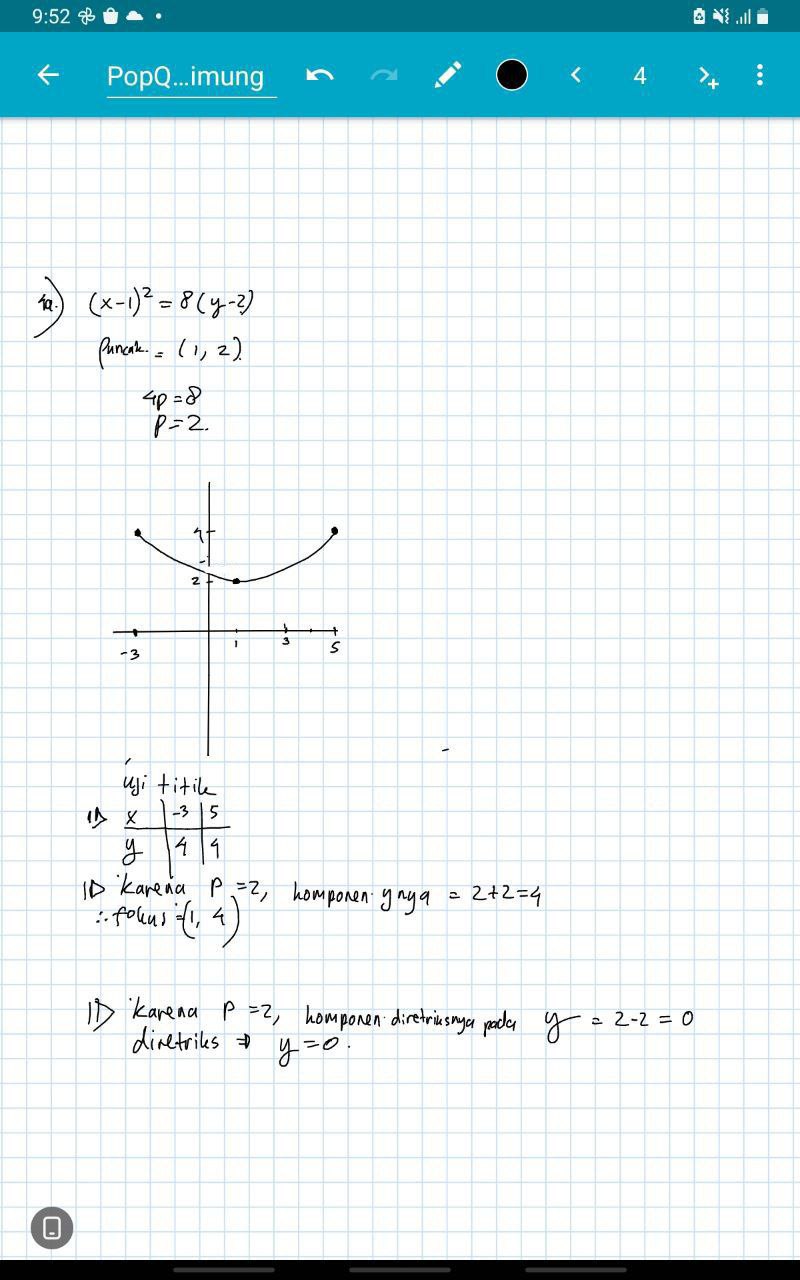 9:52
PopQ...imung
4
4a.) (x-1)² = 8(y-2)
Puncak = (1, 2)
4p = 8
p = 2.
4
2
-3 1 3 5
Uji titik
x -3 5
y 4 4
Karena P = 2, komponen ynya = 2+2=4
∴ fokus = (1, 4)
Karena P = 2, komponen diretriksnya pada y = 2-2 = 0
diretriks ⇒ y = 0.